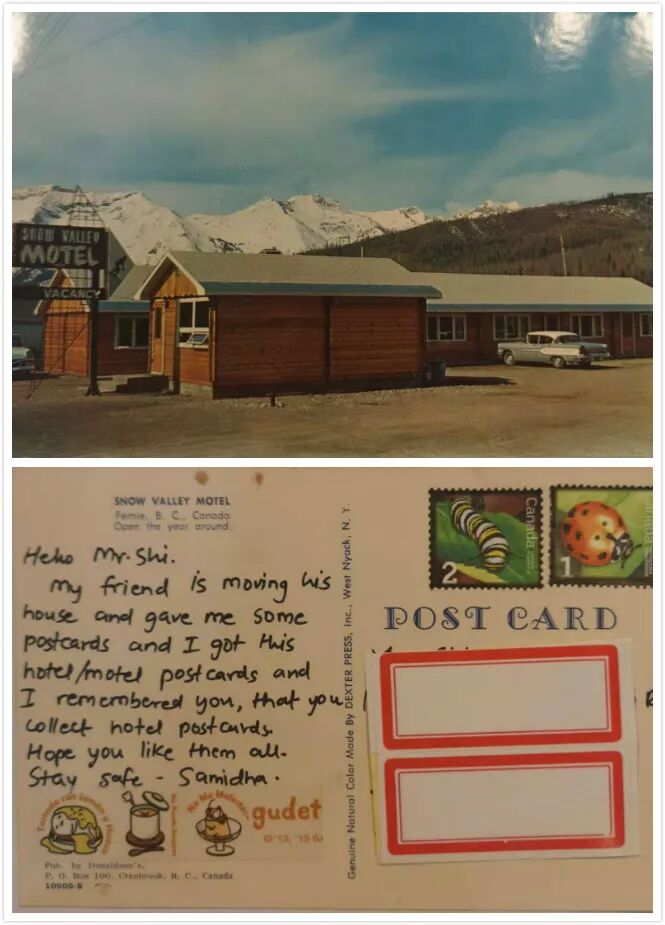 SNOW VALLEY
MOTEL
VACANCY
SNOW VALLEY MOTEL
Fernie, B. C., Canada
Open the year around.
Hello Mr. Shi.
My friend is moving his
house and gave me some
postcards and I got this
hotel/motel postcards and
I remembered you, that you
collect hotel postcards.
Hope you like them all.
Stay safe - Samidha.
No Me Molestes
gudet
© '13, '19
Pub. by Donaldson's,
P. O. Box 100, Cranbrook, B. C., Canada
10900-B
Genuine Natural Color Made By DEXTER PRESS, Inc., West Nyack, N. Y.
Canada
2
1
POST CARD